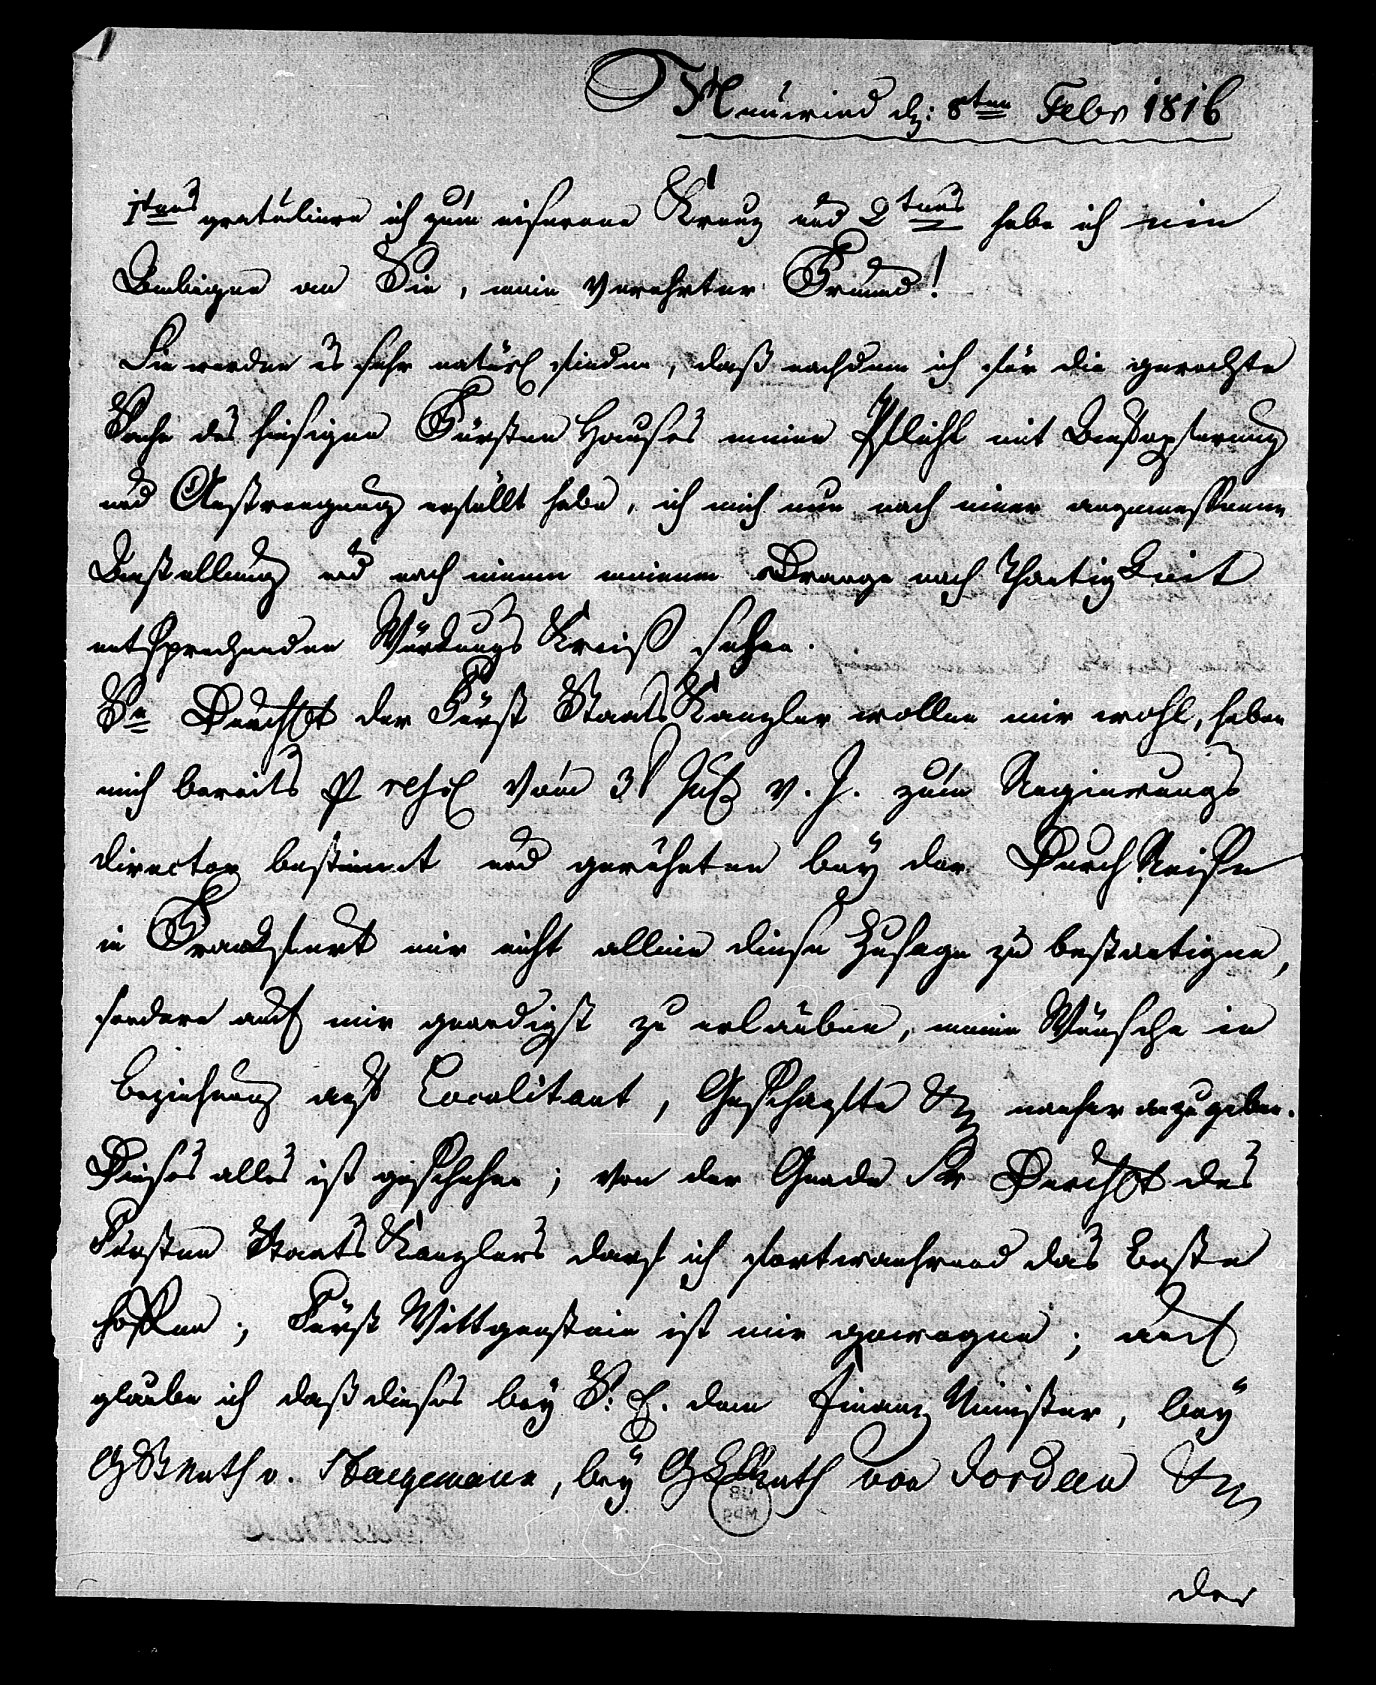 Neuwied d: 8ten Febr 1816
1tens gratuliere ich zum eisernen Kreuz und 2tens habe ich ein
Anliegen an Sie, mein verehrter Freund!
Sie werden es sehr natürl finden, daß nachdem ich für die gerechte
Sache des hiesigen Fürsten Hauses meine Pflicht mit Aufopferung
und Anstrengung erfüllt habe, ich mich nun nach einer angemessenen
Anstellung und nach einem meinem Drange nach Thaetigkeit
entsprechenden Würkungs Kreiß sehne.
Se Durchlt der Fürst Staats Kanzler wollen mir wohl, haben
mich bereits vom 3 v. J. zum Regierungs
director bestimmt und geruhten bey der Durch Reise
in Frankfurt mir nicht allein diese Zusage zu bestaetigen,
sondern auch mir gnaedigst zu erlauben, meine Wünsche in
Beziehung auf Localitaet, Geschaefte nacher anzugeben.
Dieses alles ist geschehen; von der Gnade Sr Durchlt des
Fürsten Staats Kanzlers darf ich fortwaehrend das Beste
hoffen; Fürst Wittgenstein ist mir gewogen; auch
glaube ich daß dieses bey S: E. dem Finanz Minister, bey
G St Rath v. Staegemann, bey G L Rath von Jordan
der